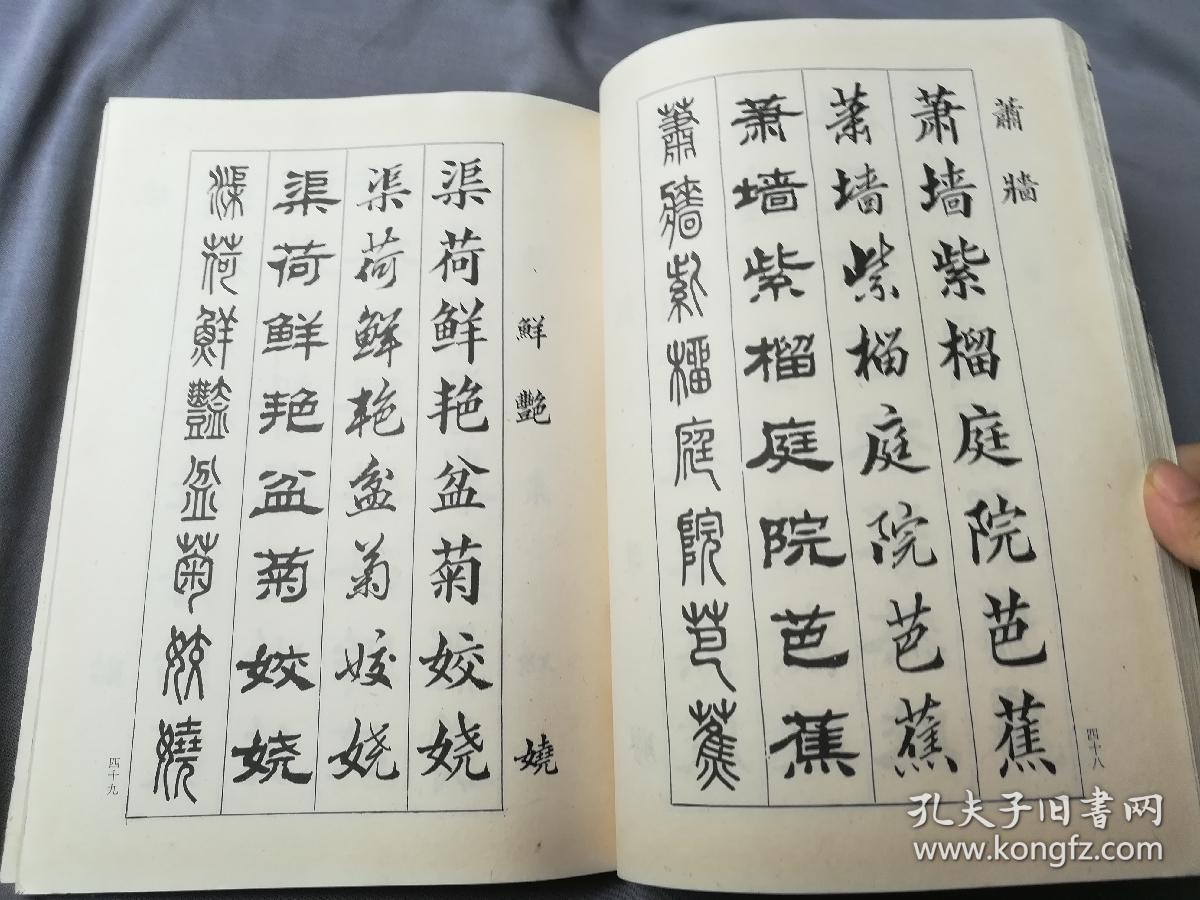 蕭牆
萧墙紫榴庭院芭蕉
萧墙紫榴庭院芭蕉
萧墙紫榴庭院芭蕉
蕭牆紫榴庭院芭蕉
四十八
鮮艷
嬈
渠荷鲜艳盆菊姣娆
渠荷鲜艳盆菊姣娆
渠荷鲜艳盆菊姣娆
渠荷鮮豔盆菊姣嬈
四十九
孔夫子旧书网
www.kongfz.com